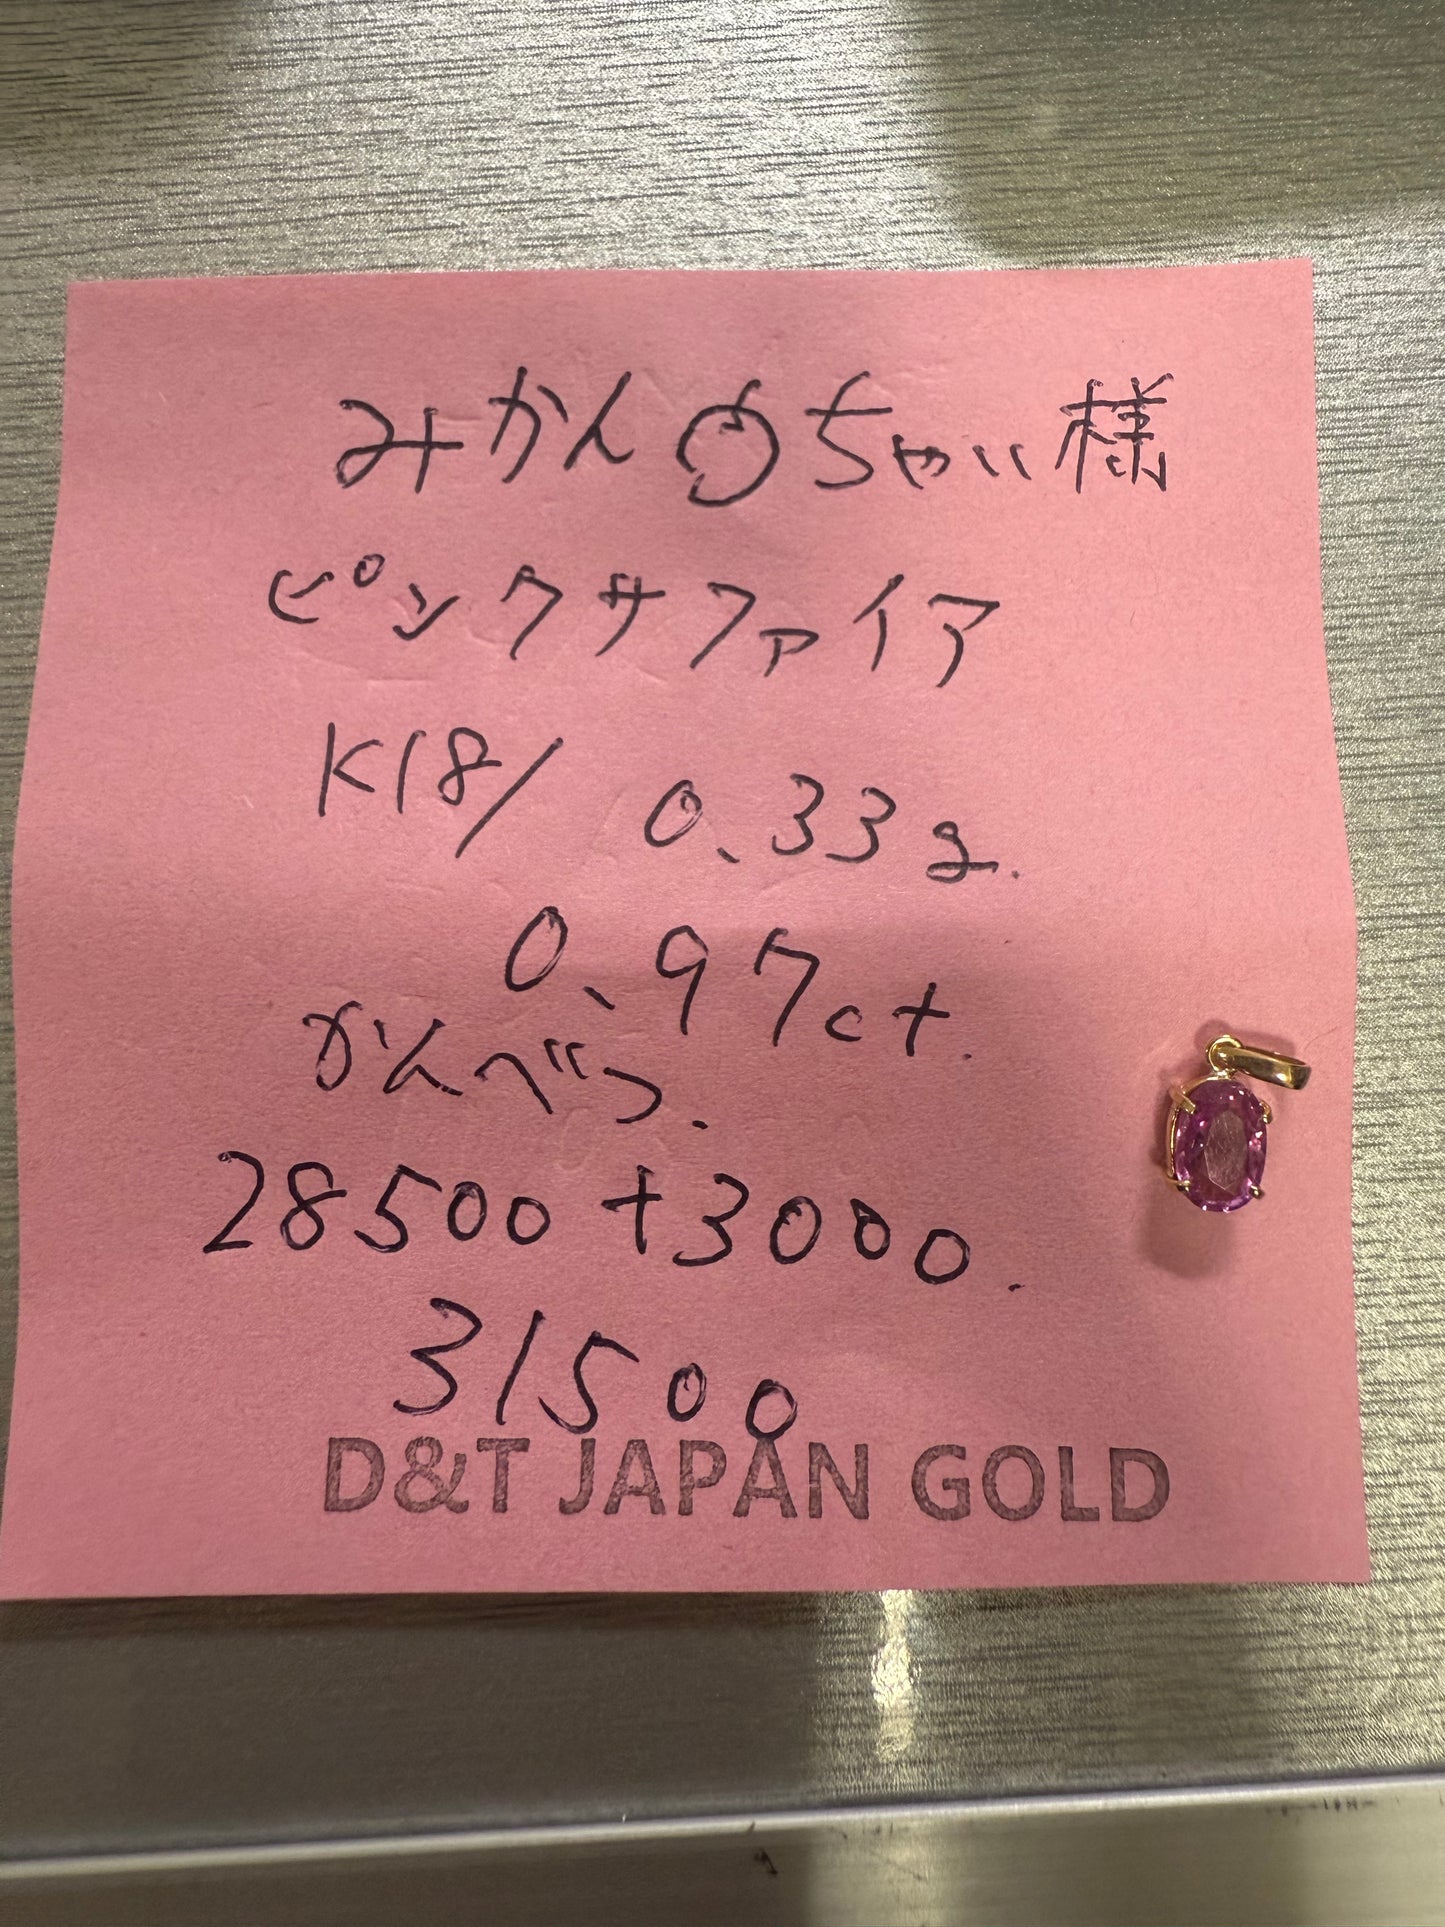 みかん🍊ちゃい様
ピンクサファイア
K18/ 0.33g.
0.97ct.
かんべつ.
28500+3000.
31500
D&T JAPAN GOLD